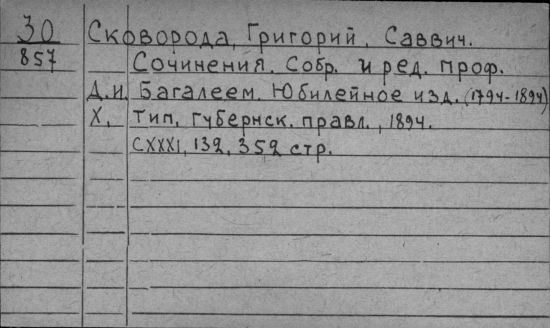 30 Сковорода, Григорий, Саввич.
857 Сочинения. Собр. и ред. проф.
Д.И. Багалеем. Юбилейное изд. (1794-1894)
Х. Тип. Губернск. правл., 1894.
CXXXI, 132, 352 стр.